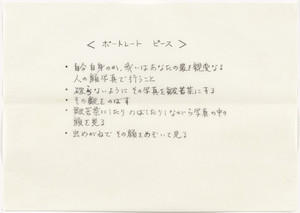 < ポートレート ピース >
・自分自身のか、或いはあなたの最も親愛なる
人の顔写真で行うこと
・破らないように その写真を皺苦茶にする
・その皺をのばす
・皺苦茶にしたり のばしたりしながら写真の中の
顔を見る
・虫めがねで その顔をめぞいて見る